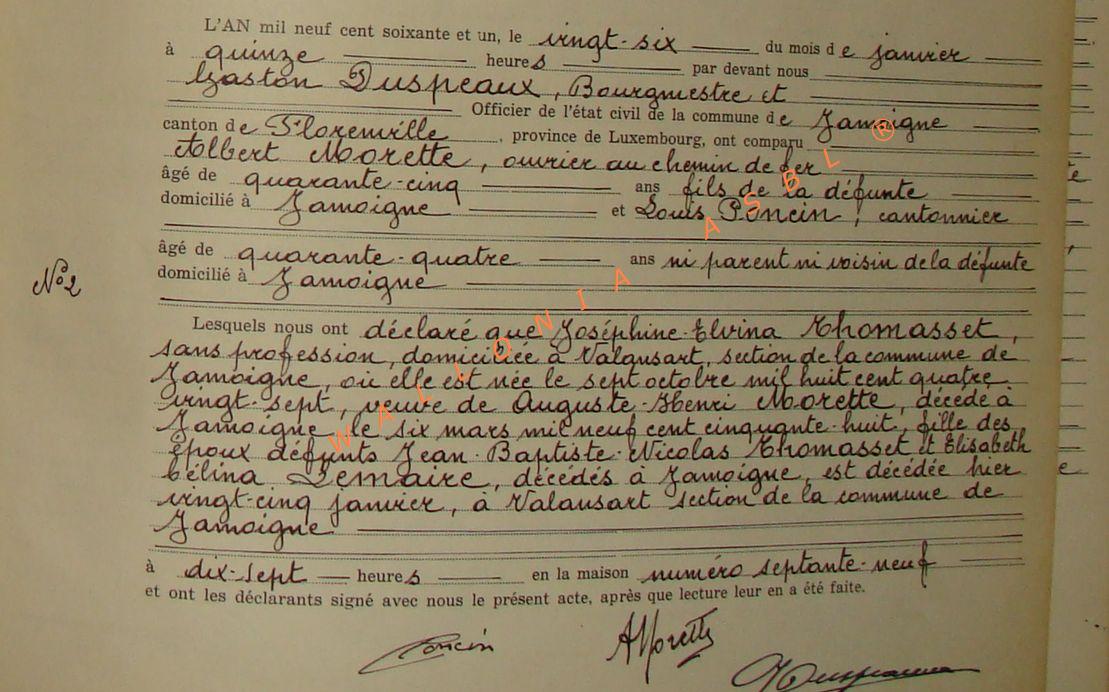 L'AN mil neuf cent soixante et un, le vingt-six du mois de janvier
à quinze heures par devant nous
Gaston Duspeaux, Bourgmestre et
Officier de l'état civil de la commune de Jamoigne
canton de Florenville, province de Luxembourg, ont comparu
Albert Morette, ouvrier au chemin de fer
âgé de quarante-cinq ans fils de la défunte
domicilié à Jamoigne et Louis Poncin, cantonnier
âgé de quarante-quatre ans ni parent ni voisin de la défunte
domicilié à Jamoigne
N°2
Lesquels nous ont déclaré que Joséphine-Elvina Thomasset,
sans profession, domiciliée à Valansart, section de la commune de
Jamoigne, où elle est née le sept octobre mil huit cent quatre
vingt-sept, veuve de Auguste-Henri Morette, décédé à
Jamoigne le six mars mil neuf cent cinquante-huit, fille des
époux défunts Jean-Baptiste-Nicolas Thomasset et Elisabeth
Célina Lemaire, décédés à Jamoigne, est décédée hier
vingt-cinq janvier, à Valansart section de la commune de
Jamoigne
à dix-sept heures en la maison numéro septante-neuf
et ont les déclarants signé avec nous le présent acte, après que lecture leur en a été faite.
Poncin AMorette
WALLONIA ASBL ®